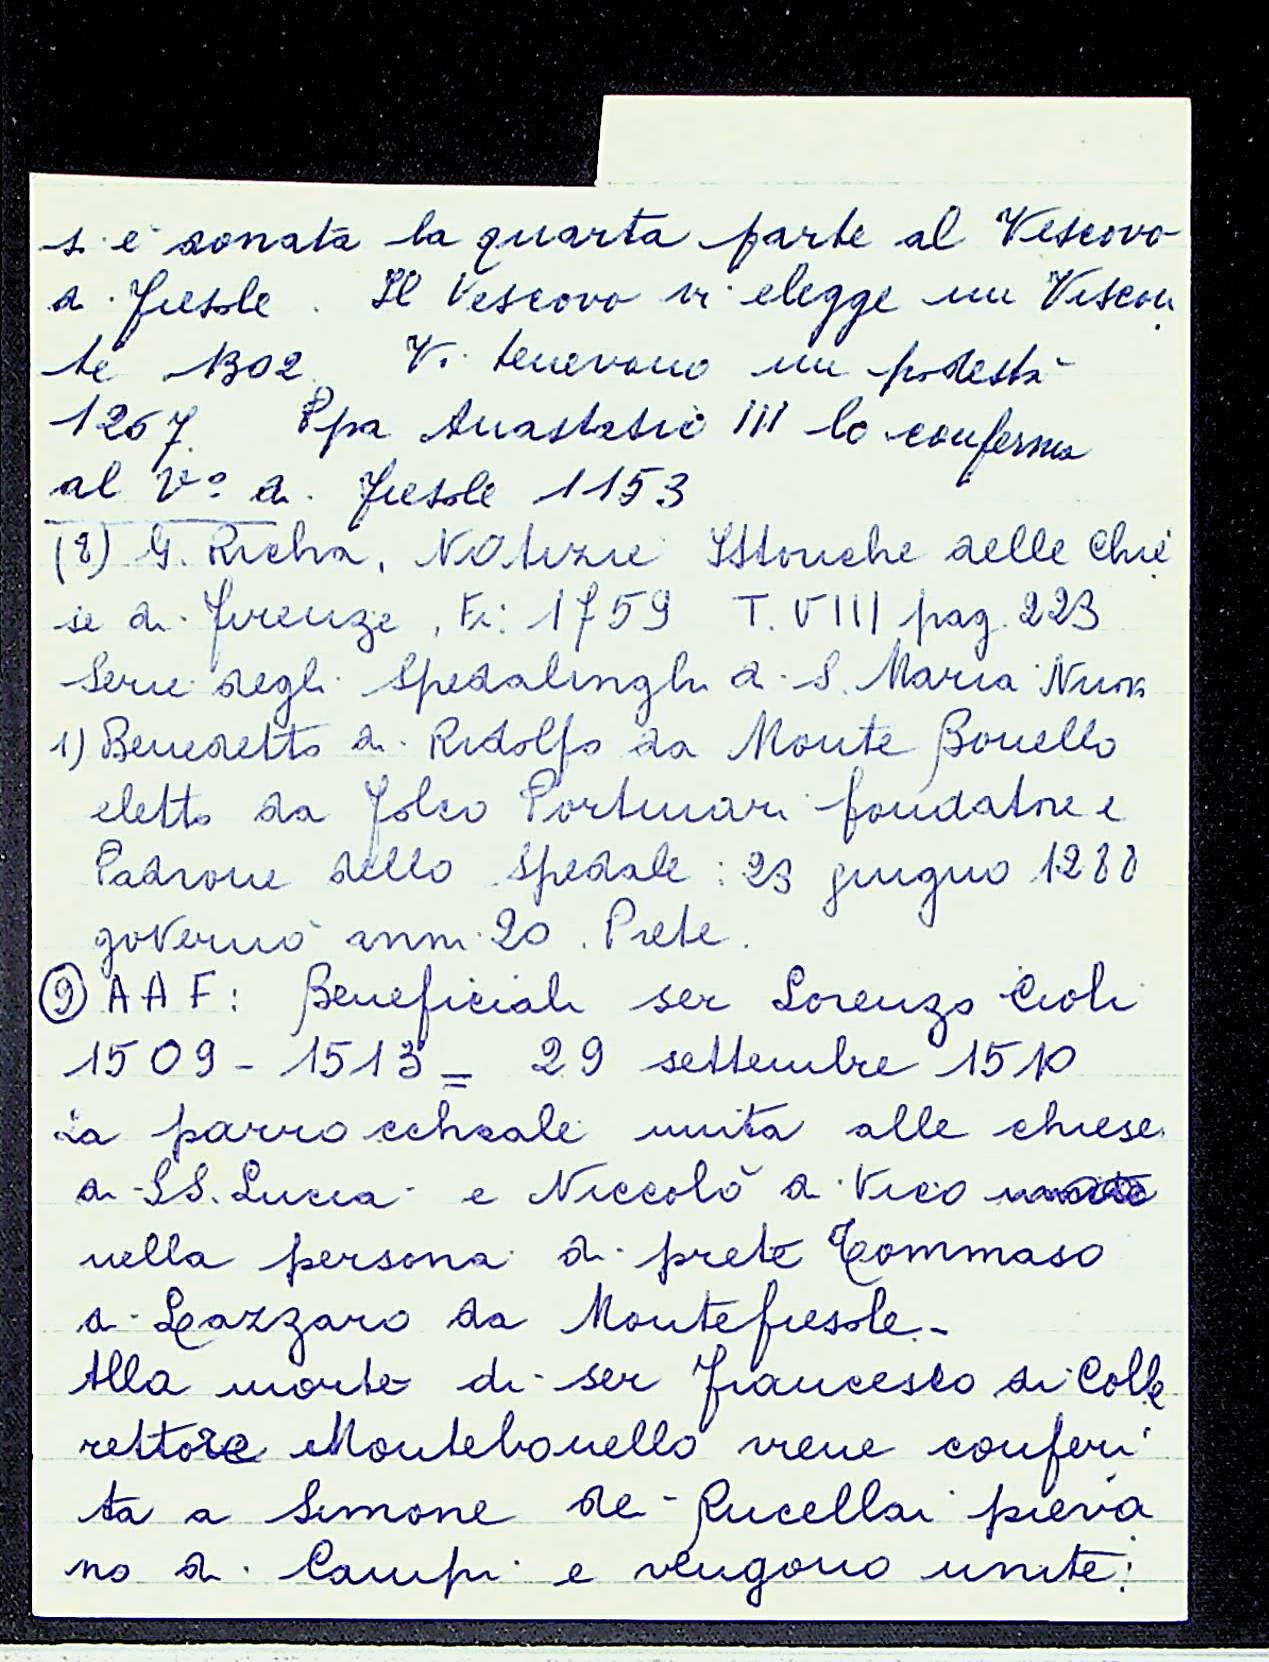 si è donata la quarta parte al Vescovo
di Fiesole. Il Vescovo vi elegge un Viscon
te 1302. Vi tenevano un podestà
1267. Ppa Anastasio III lo conferma
al Vº di Fiesole 1153
(8) G. Richa, Notizie Istoriche delle Chie
se di Firenze, Fi: 1759 T. VIII pag. 223
Serie degli Spedalinghi di S. Maria Nuova
1) Benedetto di Ridolfo da Monte Bonello
eletto da Folco Portinari fondatore e
Padrone dello Spedale: 23 giugno 1288
governò anni 20. Prete.
(9) AAF: Beneficiali ser Lorenzo Cioli
1509 - 1513 = 29 settembre 1510
La parrocchiale unita alle chiese
di SS. Lucia e Niccolò a Vico
nella persona di prete Tommaso
di Lazzaro da Montefiesole.-
Alla morte di ser Francesco di Colle
rettore Montebonello viene conferi
ta a Simone de Rucellai pieva
no di Campi e vengono unite: